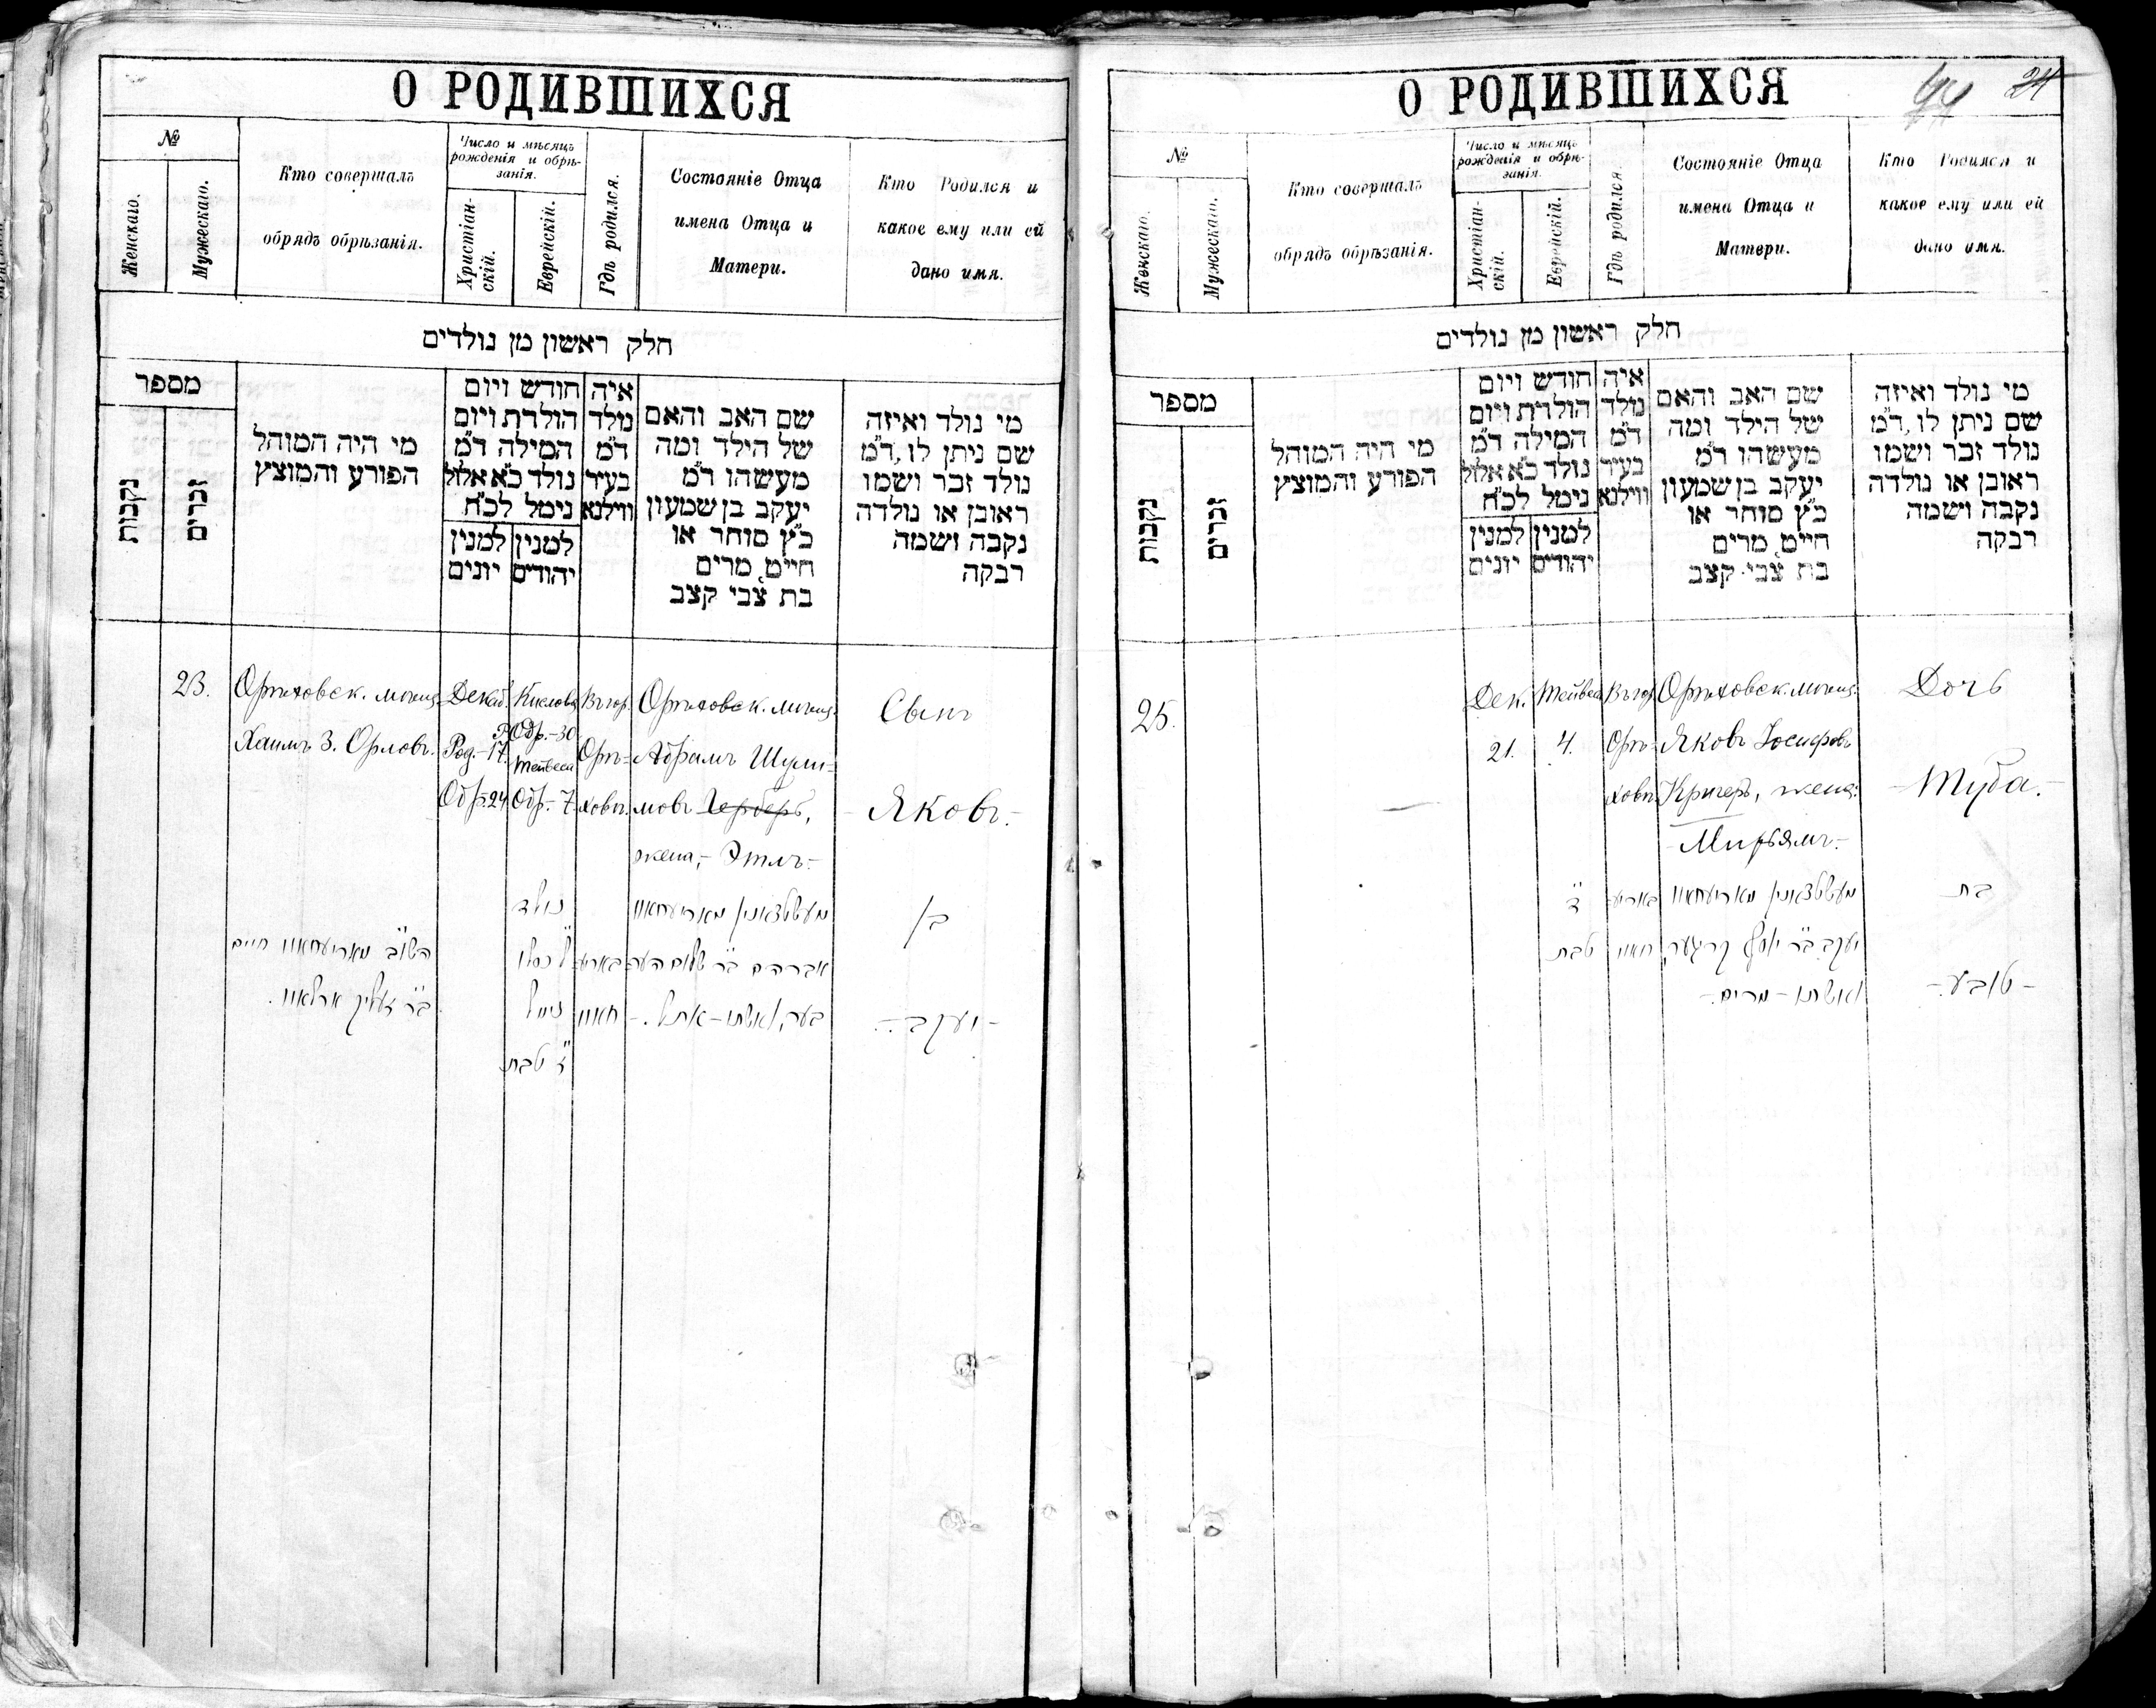 О РОДИВШИХСЯ
№
Женскаго.
Мужескаго.
Кто совершалъ
обрядъ обрѣзанія.
Число и мѣсяцъ
рожденія и обрѣ-
занія.
Христіан-
скій.
Еврейскій.
Гдѣ родился.
Состояніе Отца
имена Отца и
Матери.
Кто Родился и
какое ему или ей
дано имя.
חלק ראשון מן נולדים
מספר
נקבות
זכרים
מי היה המוהל
הפורע והמוצץ
חודש ויום
הולדת ויום
המילה ד"מ
נולד כ"א אלול
נימל לכ"ח
למנין יונים
למנין יהודים
איה
נולד
ד"מ
בעיר
ווילנא
שם האב והאם
של הילד ומה
מעשהו ד"מ
יעקב בן שמעון
כ"ץ סוחר או
חייט, מרים
בת צבי קצב
מי נולד ואיזה
שם ניתן לו, ד"מ
נולד זכר ושמו
ראובן או נולדה
נקבה ושמה
רבקה
23.
Орѣховск. мѣщ.
Хаимъ З. Орловъ.
Декаб.
Род.-17.
Обр-24
Кислева
Обр.-30
Тейвеса
Обр.-7
Въ гор.
Орѣ-
ховѣ.
Орѣховск. мѣщ.
Абрамъ Шули-
мовъ Герберъ,
жена,- Этль-
Сынъ
Яковъ.-
השו"ב מאריעחאוו חיים
ב"ר זעליק ארלאוו.
נולד
ל' כסלו
נימול
ז' טבת
באריע
חאוו
מעשטצאנין מאריעחאוו
אברהם ב"ר שלום הער
בער, ואשתו - אתל.-
בן
- יעקב -.
О РОДИВШИХСЯ
24
№
Женскаго.
Мужескаго.
Кто совершалъ
обрядъ обрѣзанія.
Число и мѣсяцъ
рожденія и обрѣ-
занія.
Христіан-
скій.
Еврейскій.
Гдѣ родился.
Состояніе Отца
имена Отца и
Матери.
Кто Родился и
какое ему или ей
дано имя.
חלק ראשון מן נולדים
מספר
נקבות
זכרים
מי היה המוהל
הפורע והמוצץ
חודש ויום
הולדת ויום
המילה ד"מ
נולד כ"א אלול
נימל לכ"ח
למנין יונים
למנין יהודים
איה
נולד
ד"מ
בעיר
ווילנא
שם האב והאם
של הילד ומה
מעשהו ד"מ
יעקב בן שמעון
כ"ץ סוחר או
חייט, מרים
בת צבי קצב
מי נולד ואיזה
שם ניתן לו, ד"מ
נולד זכר ושמו
ראובן או נולדה
נקבה ושמה
רבקה
25.
Дек.
21.
Тейвеса
4.
Въ гор.
Орѣ-
ховѣ.
Орѣховск. мѣщ.
Яковъ Іосифовъ
Кригеръ, жена:
-Мирьямъ.-
Дочь
-Туба.-
ד'
טבת
באריע
חאוו
מעשטצאנין מאריעחאוו
יעקב ב"ר יוסף קריגער,
ואשתו - מרים.-
בת
- טובע.-